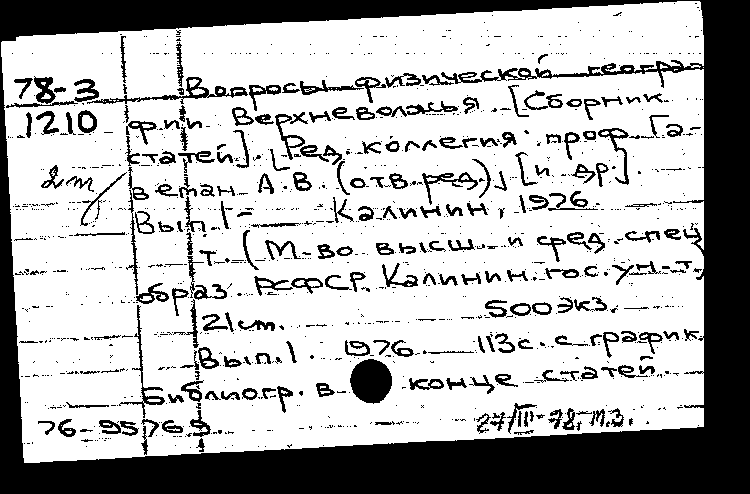 78-3 Вопросы физической геогра-
1210 фии Верхневолжья. [Сборник
статей]. [Ред. коллегия: проф. Га-
веман А.В. (отв.ред.), [и др.].
Вып.1- Калинин, 1976.
т. (М-во высш. и сред. спец
образ. РСФСР. Калинин. гос. ун-т.)
21см. 500экз.
Вып.1. 1976. 113с. с график.
Библиогр. в конце статей.
76-95769.
27/III-78. М.З.